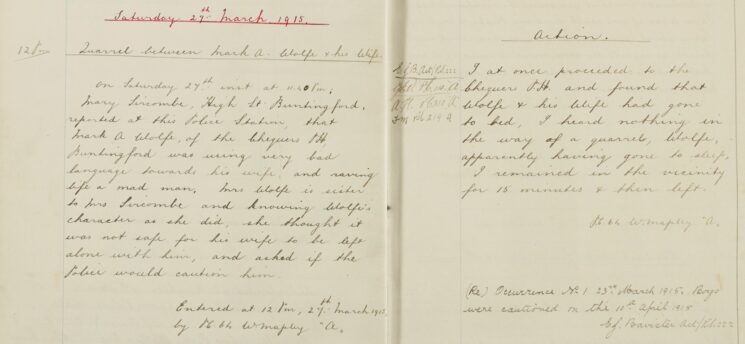 Saturday 27th March, 1915.
12 Pm
Quarrel between Mark A. Wolfe & his Wife.
On Saturday 27th inst at 11.40 Pm,
Mary Sircombe, High St Buntingford,
reported at this Police Station, that
Mark A Wolfe, of the Chequers P.H,
Buntingford was using very bad
language towards his wife, and raving
like a mad man. Mrs Wolfe is sister
to Mrs Sircombe and knowing Wolfe's
character as she did, she thought it
was not safe for his wife to be left
alone with him, and asked if the
Police would caution him.
Entered at 12 Pm, 27th March 1915,
by PC 64 W. Mapley "A.
Action.
I at once proceeded to the
Chequers P.H. and found that
Wolfe & his Wife had gone
to bed, I heard nothing in
the way of a quarrel, Wolfe,
apparently having gone to sleep.
I remained in the vicinity
for 15 minutes & then left.
PC 64 W. Mapley "A.
(Re) Occurrence No. 1 23rd March 1915. Boys
were cautioned on the 10th April 1915